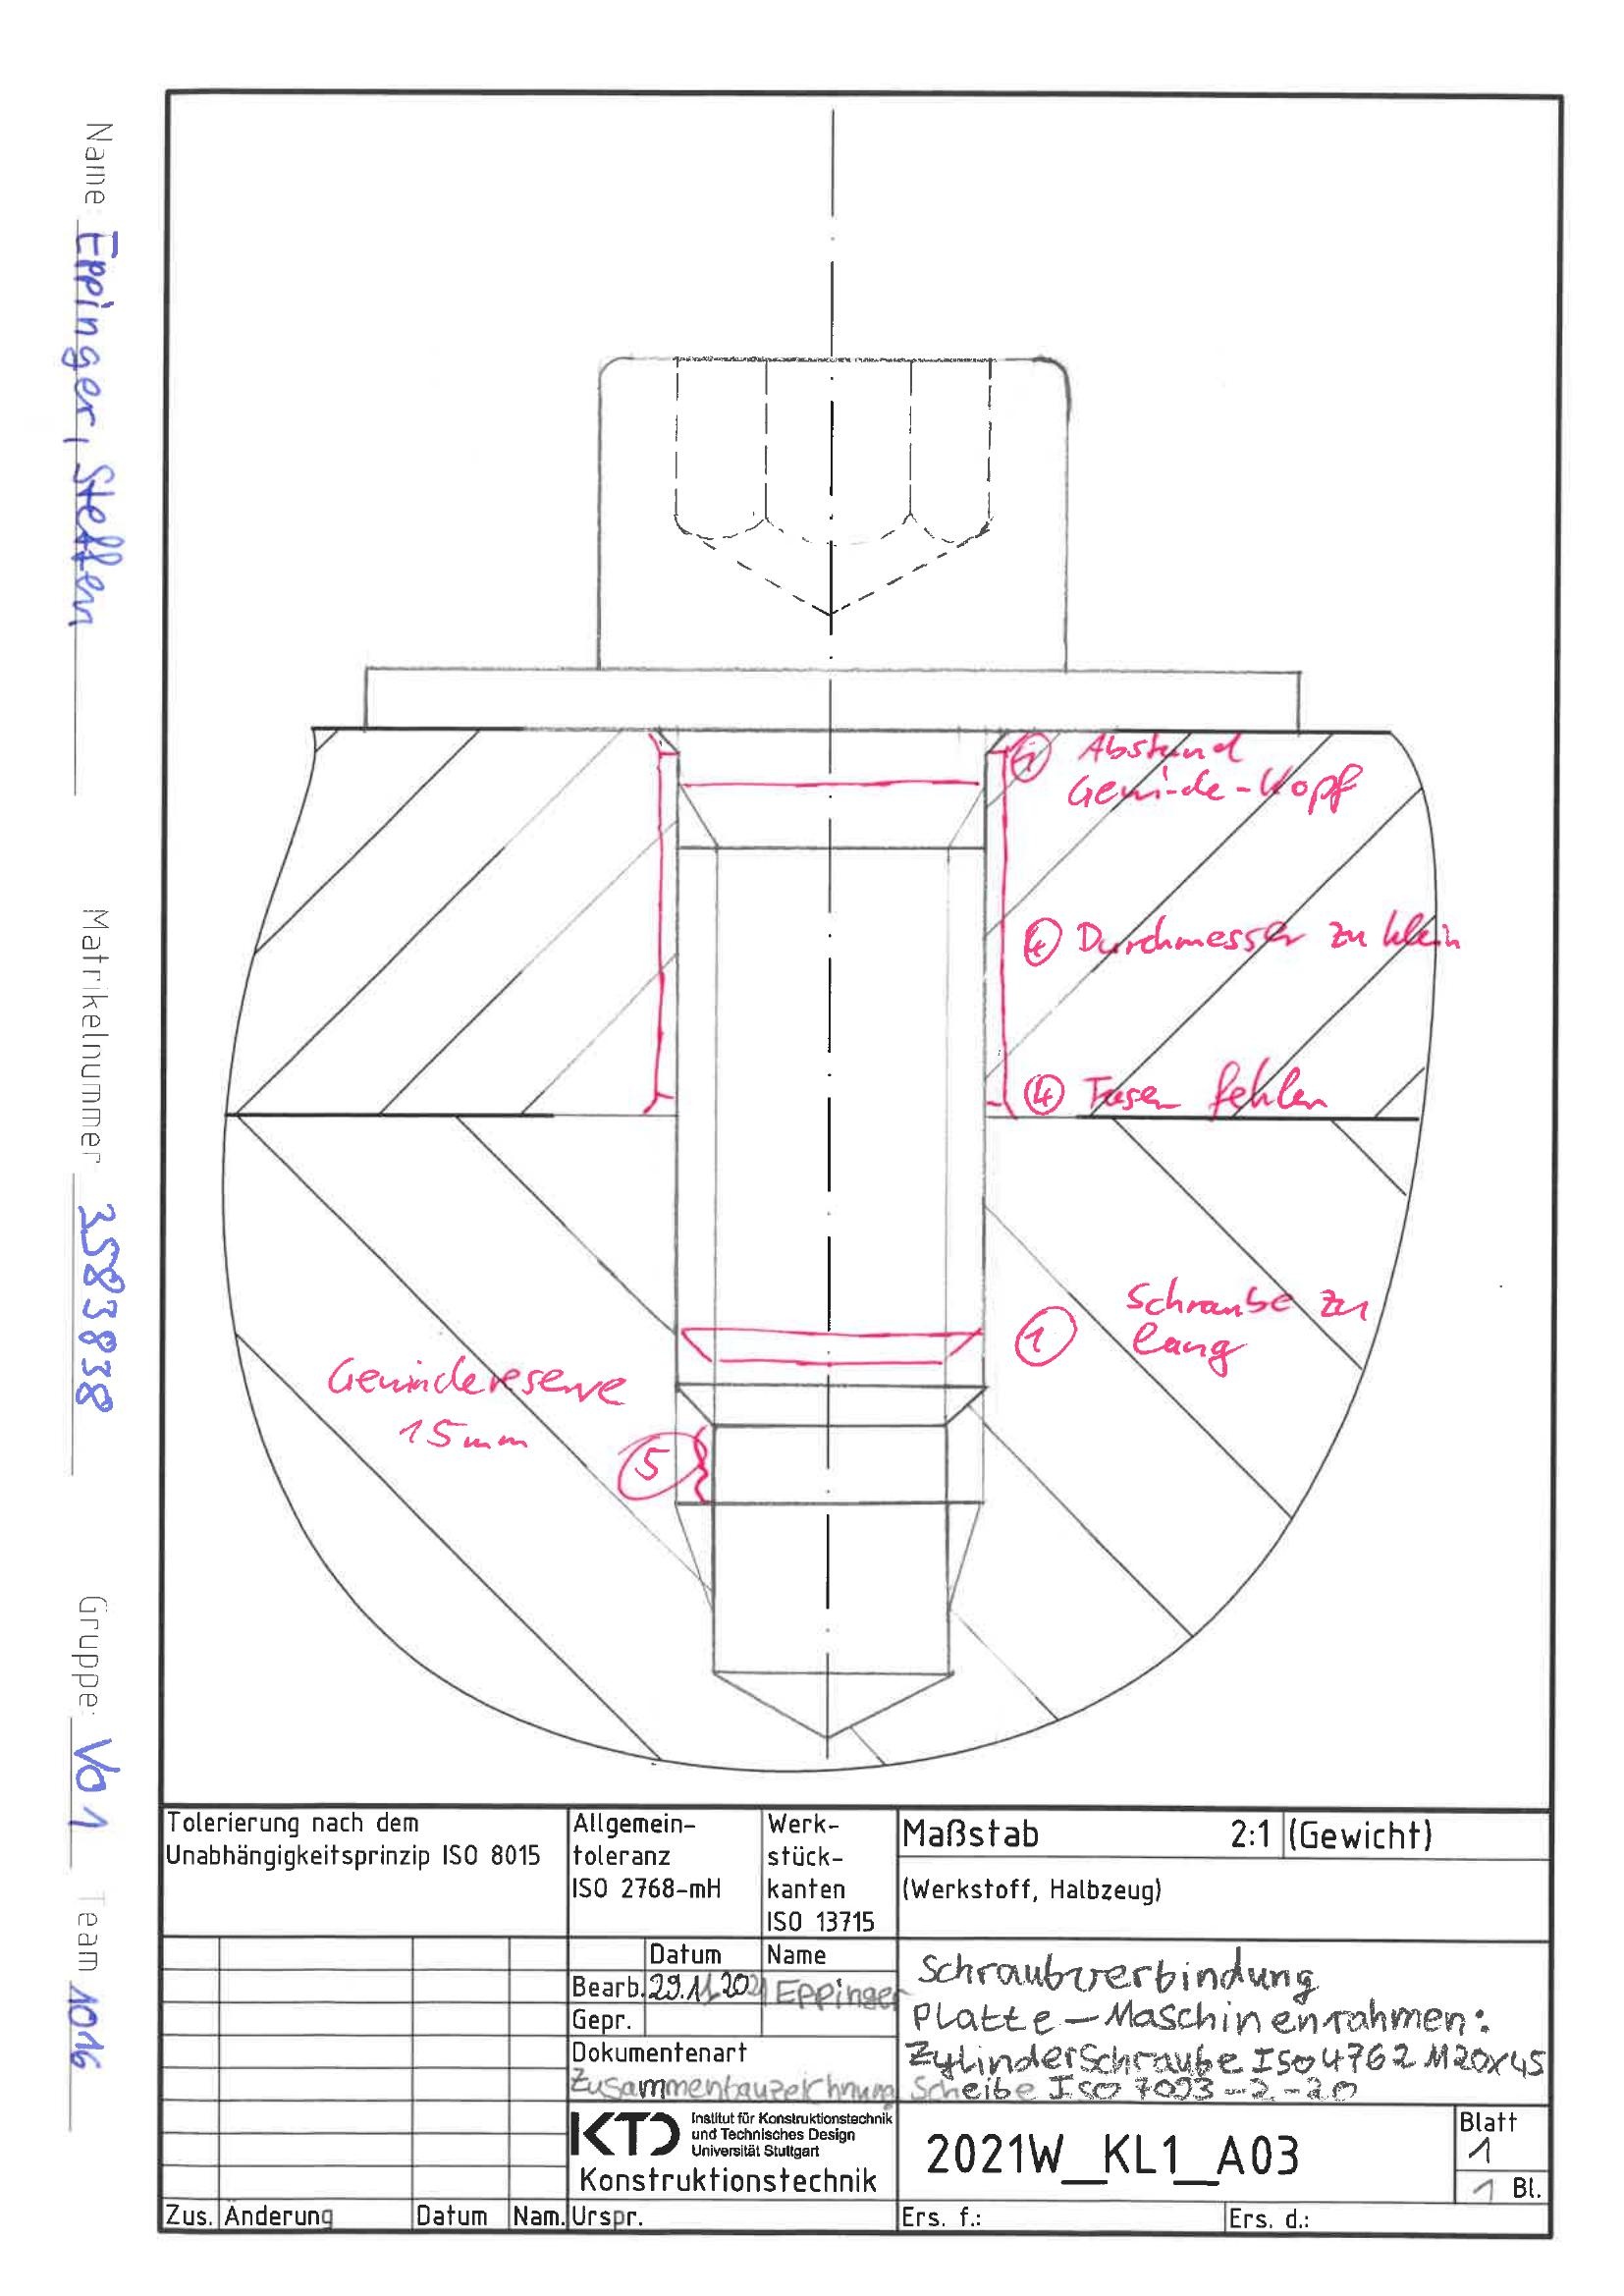 Name: Eppinger, Steffen
Matrikelnummer 3583838
Gruppe: Vo1
Team 1016
Abstand
Gewinde-Kopf
④ Durchmesser zu klein
④ Fasen fehlen
① Schraube zu
lang
Gewindereserve
15mm
⑤
Tolerierung nach dem
Unabhängigkeitsprinzip ISO 8015
Allgemein-
toleranz
ISO 2768-mH
Werk-
stück-
kanten
ISO 13715
Maßstab 2:1 (Gewicht)
(Werkstoff, Halbzeug)
Datum Name
Bearb. 29.11.2021 Eppinger
Gepr.
Dokumentenart
Zusammenbauzeichnung
Schraubverbindung
Platte-Maschinenrahmen:
Zylinderschraube Iso4762 M20x45
Scheibe ISO 7093-2-20
KTD Institut für Konstruktionstechnik
und Technisches Design
Universität Stuttgart
Konstruktionstechnik
2021W_KL1_A03
Blatt
1
1 Bl.
Zus. Änderung Datum Nam. Urspr. Ers. f.: Ers. d.: